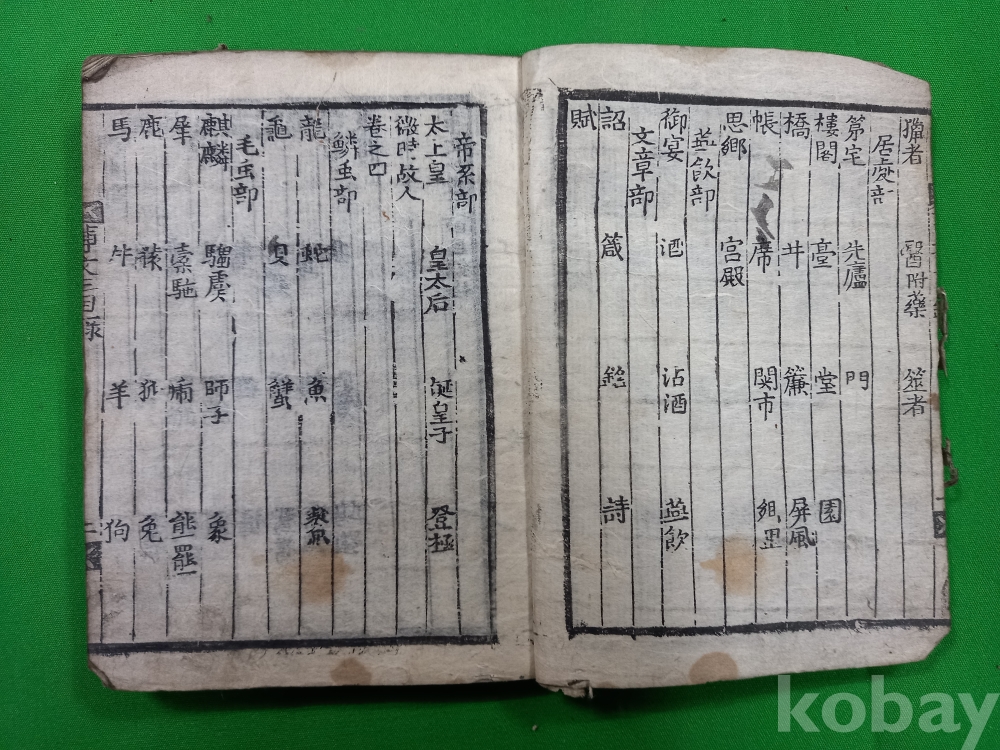 獵者 醫附藥 筮者
居處部
第宅 先廬 門
樓閣 臺 堂 園
橋 井 簾 屏風
帳 席 関市
思鄉 宮殿
燕飲部
御宴 酒 沽酒 燕飲
文章部
詔 箴 銘 詩
賦
帝系部
太上皇 皇太后 誕皇子 登極
微時故人
卷之四
鱗虫部
龍 蛇 魚
龜 蟹
毛虫部
麒麟 騶虞 師子 象
犀 槖駞 熊羆
鹿 兔
馬 牛 羊 狗
目錄 二
kobay